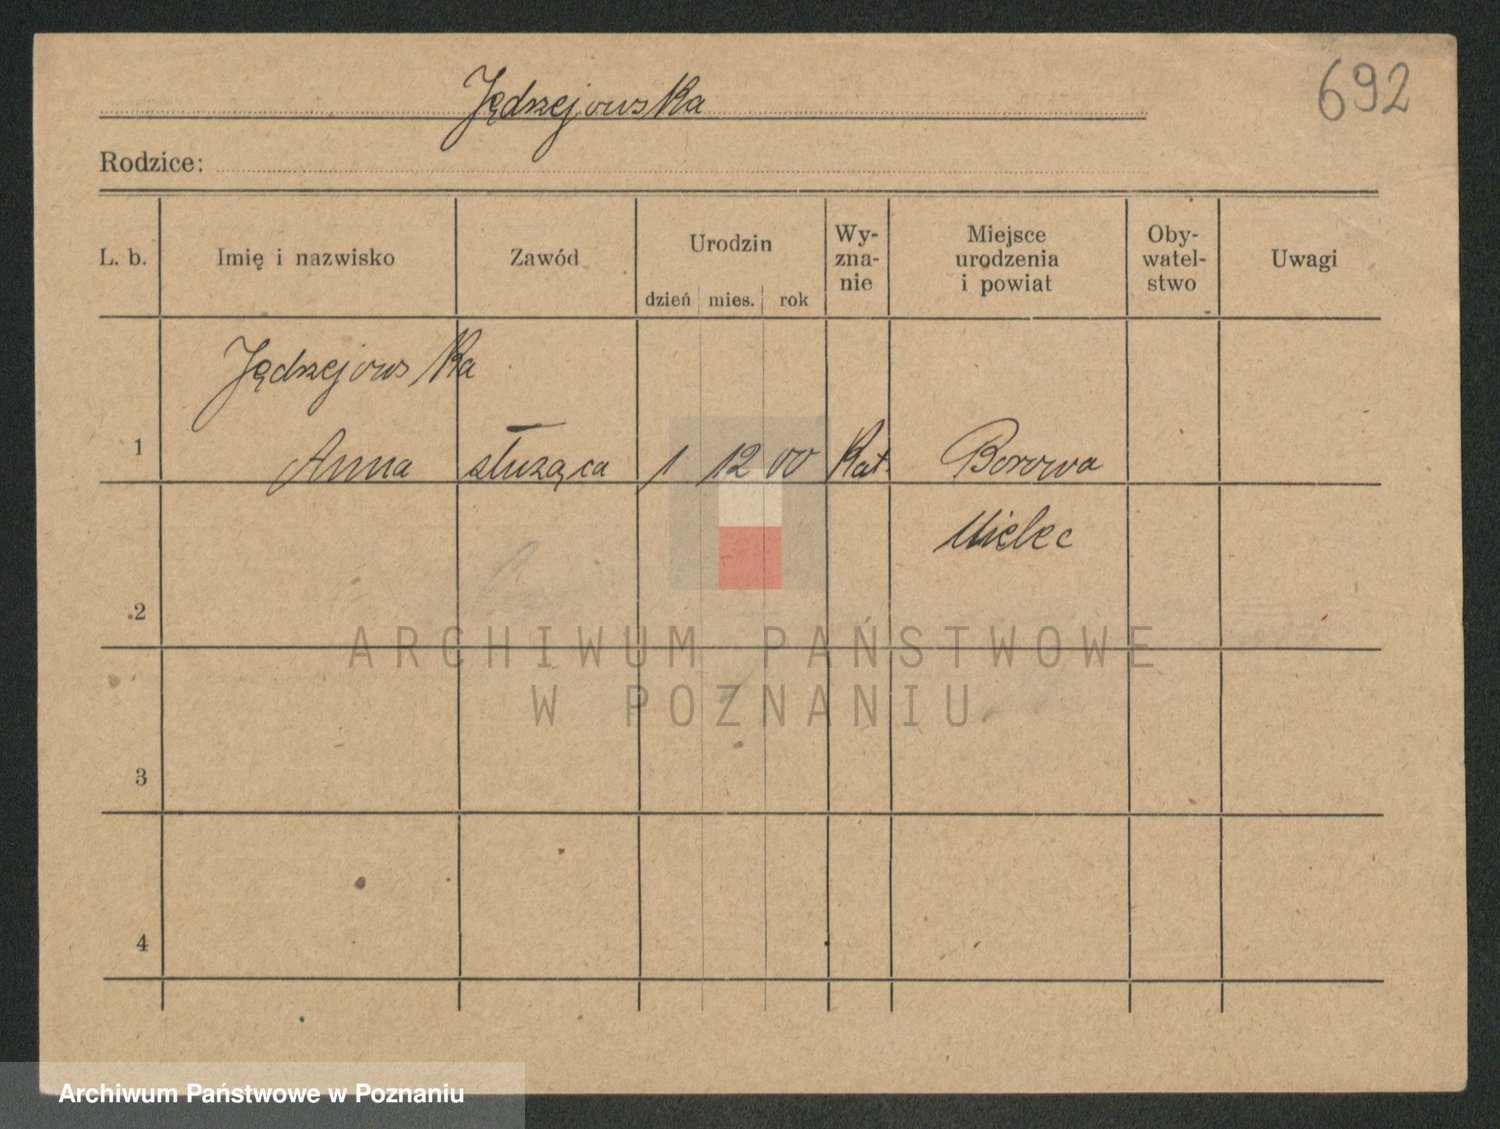 692
Jędrzejowska
Rodzice:
L. b. Imię i nazwisko Zawód Urodzin dzień mies. rok Wy-zna-nie Miejsce urodzenia i powiat Oby-watel-stwo Uwagi
Jędrzejowska
1 Anna służąca 1 12 00 Kat. Borowa
Mielec
2
ARCHIWUM PAŃSTWOWE
W POZNANIU
3
4
Archiwum Państwowe w Poznaniu